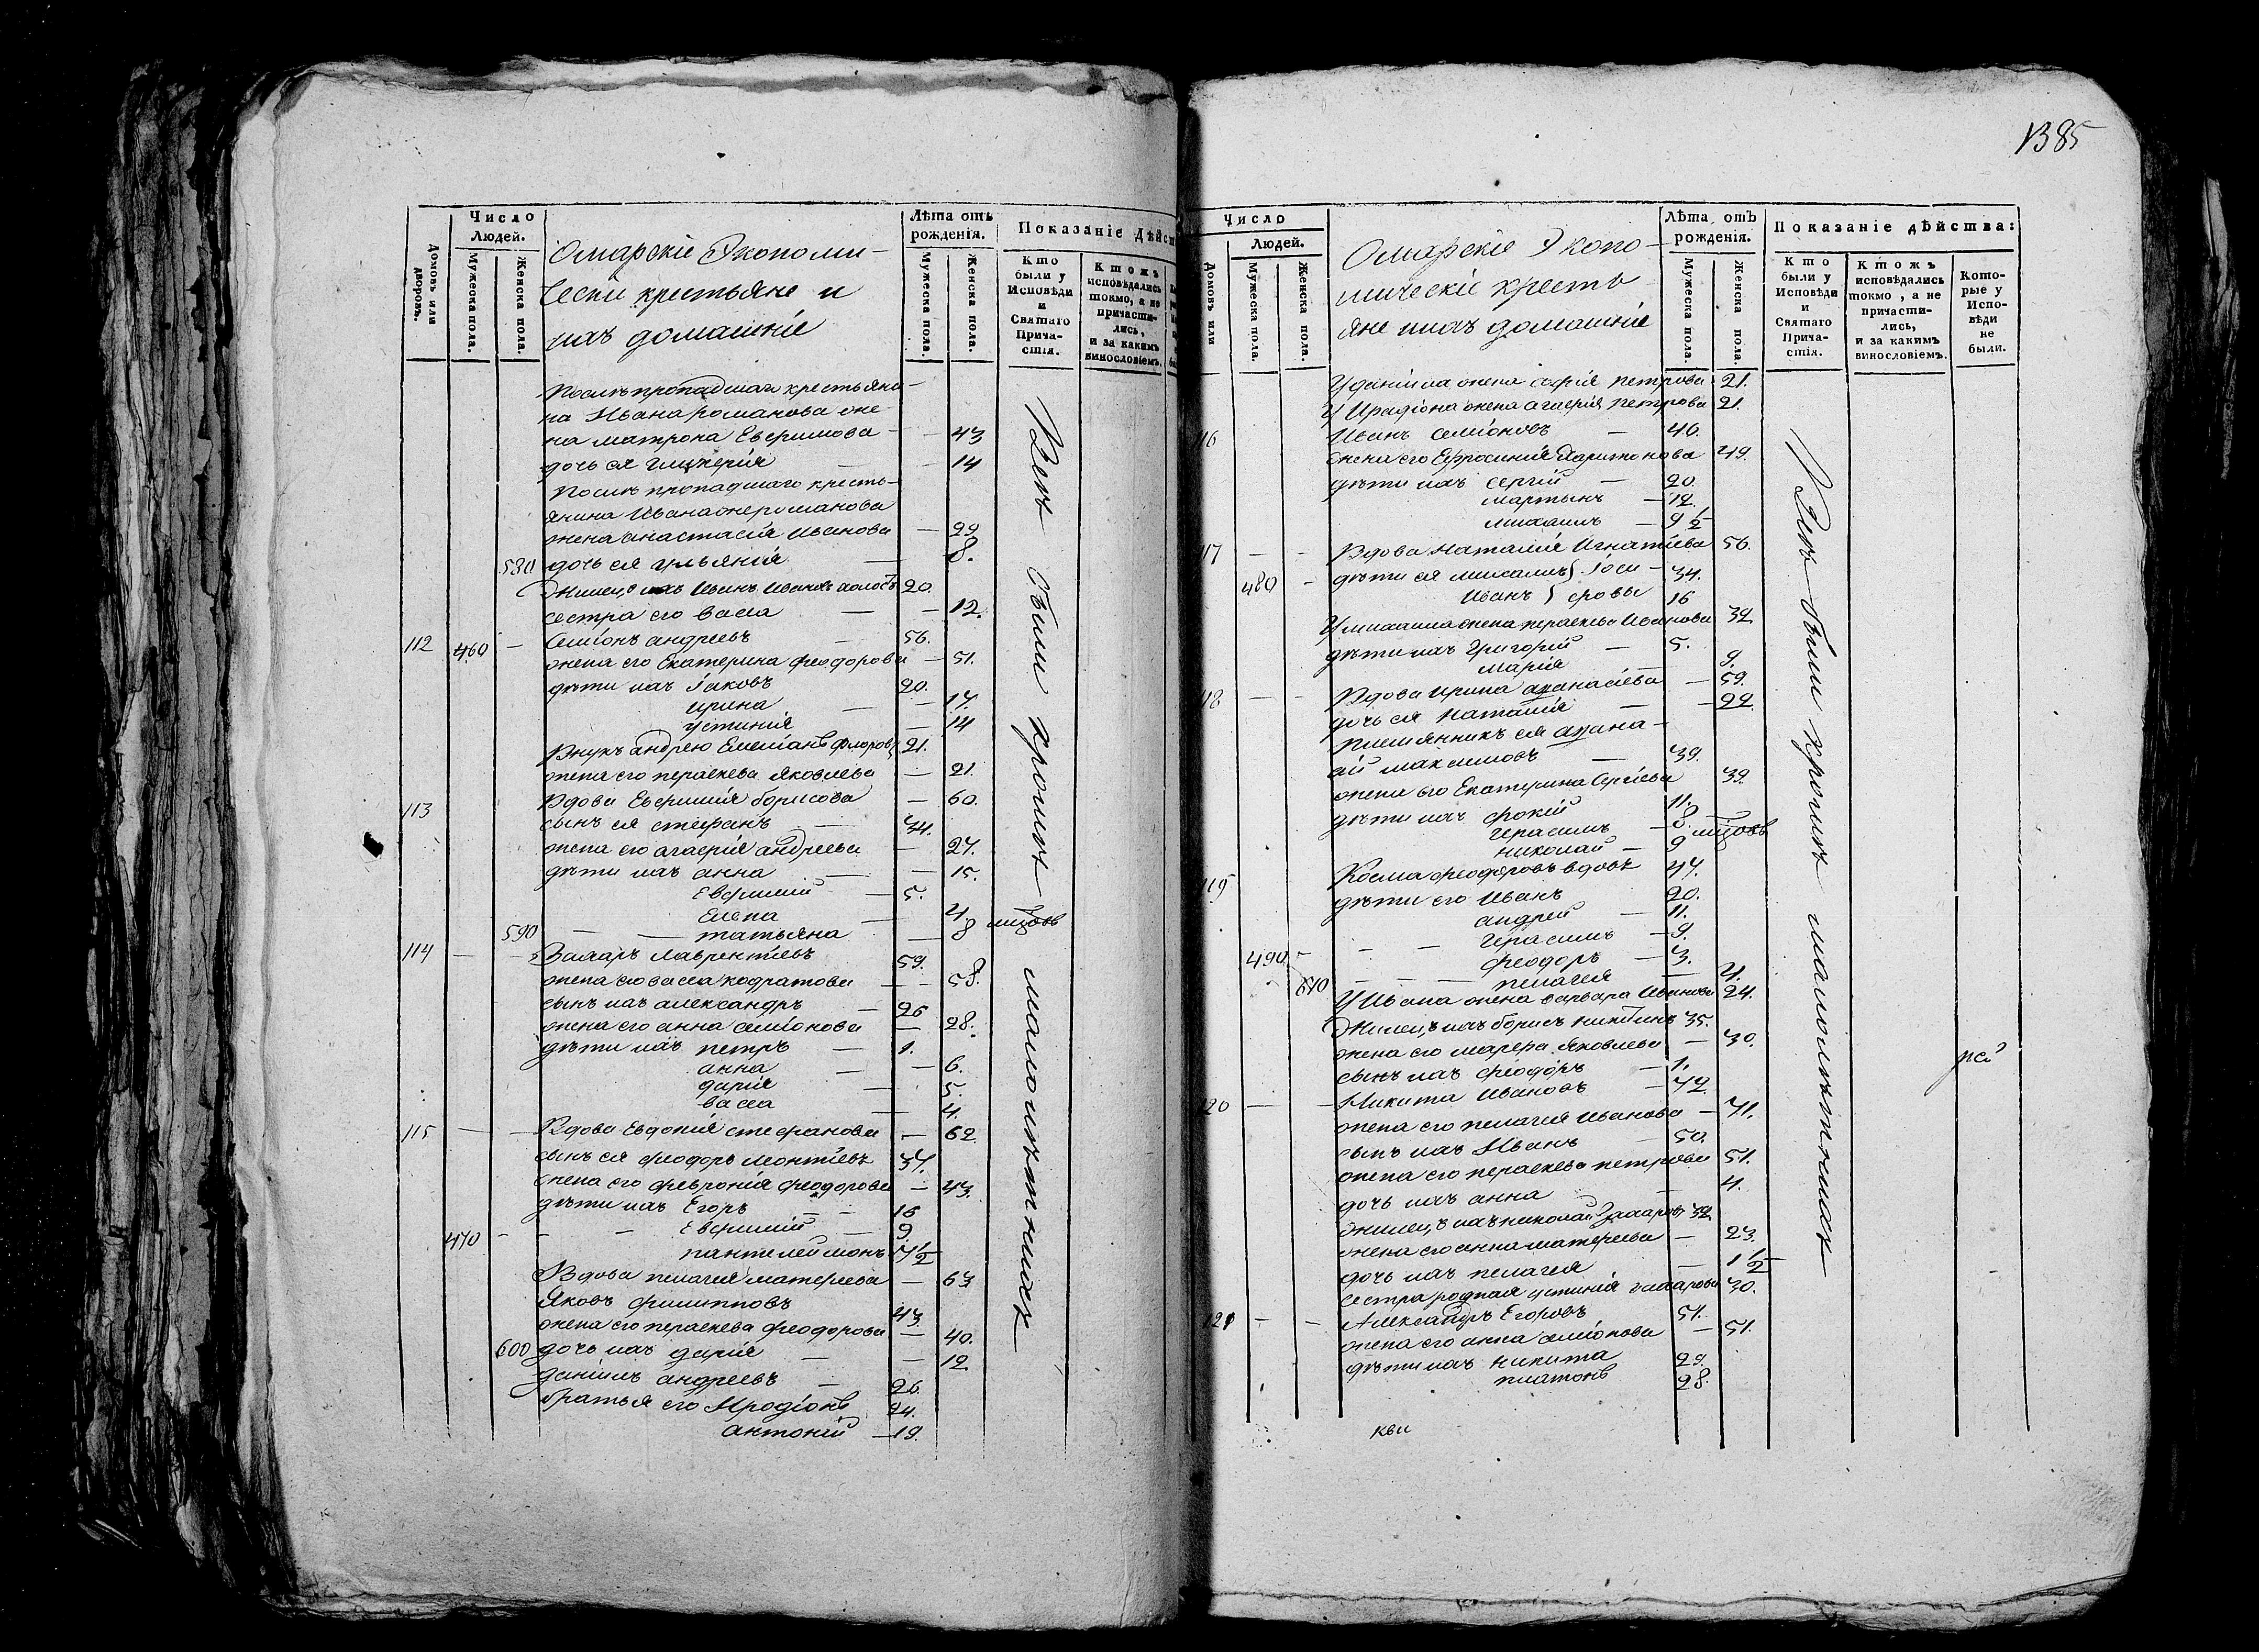 Число
Людей.
Домовъ или дворовъ.
Мужеска пола.
Женска пола.
Омарскіе Экономи-
чески крестьяне и
ихъ домашніе
Лѣта отъ
рожденія.
Мужеска пола.
Женска пола.
Показаніе дѣйст
Кто
были у
Исповѣди
и
Святаго
Прича-
стія.
Ктожъ
исповѣдались
токмо, а не
причасти-
лись,
и за какимъ
винословіемъ.
Послѣ пропадшаго крестьяни-
на Ивана Романова же-
на матрона Евфимова — 43
дочь ея гликерія — 14
Послѣ пропадшаго кресть-
янина Ивана же романова
жена анастасія Иванова — 22
580 дочь ея ульянія — 8.
Жилецъ ихъ Иванъ Ивановъ холостъ 20.
сестра его васса — 12.
112 460 — Семіонъ андреевъ 56.
жена его Екатерина феодорова — 51.
дѣти ихъ Іаковъ 20.
ирина — 17.
устинія — 14
Внукъ андрею Емеліанъ флоровъ 21.
жена его параскева яковлева — 21
113 Вдова Евфимія борисова — 60.
сынъ ея стефанъ — 34.
жена его агафія андреева — 27.
дѣти ихъ анна — 15.
Евфимій — 5.
Елена — 4
590 — татьяна — 8 мцовъ
114 — — Захаръ Лаврентіевъ 59.
жена его васса кодратова — 58.
сынъ ихъ александръ — 26
жена его анна семіонова — 28.
дѣти ихъ петръ — 1.
анна — 6.
дарія — 5.
васса — 4.
115 — — Вдова Евдокія стефанова — 62
сынъ ея феодоръ леонтіевъ 37.
жена его февронія феодорова — 43.
дѣти ихъ Егоръ — 16
Евфимій — 9.
470 — пантелеймонъ 7½
Вдова пелагея матфеева — 63
Яковъ филипповъ 43.
жена его параскева феодорова — 40.
600 дочь ихъ дарія — 12
даніилъ андреевъ — 26.
братья его Иродіонъ 24.
антоній — 19.
Всѣ были кромѣ малолѣтнихъ
1385
Число
Людей.
Домовъ или
Мужеска пола.
Женска пола.
Омарскіе Эконо-
мическіе кресть
яне и ихъ домашніе
Лѣта отъ
рожденія.
Мужеска пола.
Женска пола.
Показаніе дѣйства:
Кто
были у
Исповѣди
и
Святаго
Прича-
стія.
Ктожъ
исповѣдались
токмо, а не
причасти-
лись,
и за какимъ
винословіемъ.
Кото-
рые у
Испо-
вѣди
не
были.
У даніила жена софія петрова 21.
У Иродіона жена агафія петрова 21.
16 Иванъ семіоновъ — 40.
жена его Ефросинія Харитонова 49.
дѣти ихъ сергій — 20.
мартынъ — 12.
михаилъ — 9½
17 — — Вдова наталія Игнатіева 56.
480 — дѣти ея михаилъ } іоси- 34.
Иванъ } фовы 16
У михаила жена параскева Иванова 32
дѣти ихъ Григорій — 5.
марія 9.
18 — — Вдова ирина афанасіева — 59.
дочь ея наталія — 22.
племянникъ ея афана-
сій максимовъ 39.
жена его Екатерина Сергіева 39.
дѣти ихъ фокій 11.
герасимъ — 8 мцовъ
николай — 9
119 Косма феодоровъ вдовъ 47.
дѣти его Иванъ 20.
андрей — 11.
— — герасимъ — 9.
490 — феодоръ — 3.
610 — — пелагея — 4.
У Ивана жена варвара Иванова 24.
Жилецъ ихъ борисъ никитинъ 35.
жена его марфа яковлева — 30.
сынъ ихъ феодоръ — 1.
20 — — Никита Ивановъ — 72.
жена его пелагея Иванова — 71.
сынъ ихъ Иванъ — 50.
жена его параскева петрова 51.
дочь ихъ анна — 4.
жилецъ ихъ николай Захаровъ 32
жена его анна матфеева — 23.
дочь ихъ пелагея — 1½
сестра родная устинія захарова 30.
121 — — Александръ Егоровъ 51.
жена его анна семіонова — 51.
дѣти ихъ никита 29.
платонъ 28.
Всѣ были кромѣ малолѣтнихъ